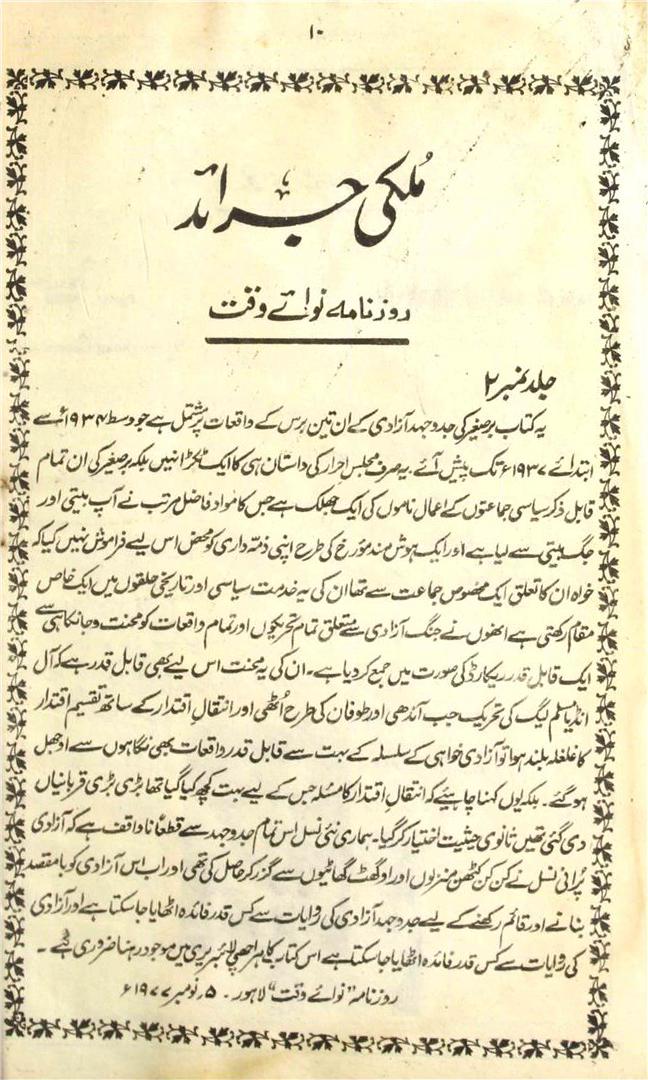 ۱۰
مُلکی جرائد
روزنامہ نوائے وقت
جلد نمبر ۲
یہ کتاب برصغیر کی جدوجہد آزادی کے ان تین برس کے واقعات پر مشتمل ہے جو وسط ۱۹۳۴ء سے
ابتدائے ۱۹۳۷ء تک پیش آئے۔ یہ صرف مجلس احرار کی داستان ہی کا ایک ٹکڑا نہیں بلکہ برصغیر کی ان تمام
قابل ذکر سیاسی جماعتوں کے اعمال ناموں کی ایک جھلک ہے جس کا مواد فاضل مرتب نے آپ بیتی اور
جگ بیتی سے لیا ہے اور ایک ہوش مند مؤرخ کی طرح اپنی ذمّہ داری کو محض اس لیے فراموش نہیں کیا کہ
خواہ ان کا تعلق ایک مخصوص جماعت سے تھا ان کی یہ خدمت سیاسی اور تاریخی حلقوں میں ایک خاص
مقام رکھتی ہے انھوں نے جنگ آزادی سے متعلق تمام تحریکوں اور تمام واقعات کو محنت و جانکاہی سے
ایک قابل قدر ریکارڈ کی صورت میں جمع کر دیا ہے۔ ان کی یہ محنت اس لیے بھی قابل قدر ہے کہ آل
انڈیا مسلم لیگ کی تحریک جب آندھی اور طوفان کی طرح اُٹھی اور انتقال اقتدار کے ساتھ تقسیم اقتدار
کا غلغلہ بلند ہوا تو آزادی خواہی کے سلسلہ کے بہت سے قابل قدر واقعات بھی نگاہوں سے اوجھل
ہو گئے۔ بلکہ یوں کہنا چاہیئے کہ انتقال اقتدار کا مسئلہ جس کے لیے بہت کچھ کیا گیا تھا بڑی بڑی قربانیاں
دی گئی تھیں ثانوی حیثیت اختیار کر گیا۔ ہماری نئی نسل اس تمام جدوجہد سے قطعاً ناواقف ہے کہ آزادی
پُرانی نسل نے کن کن کٹھن منزلوں اور اوگھٹ گھاٹیوں سے گزر کر حاصل کی تھی اور اب اس آزادی کو بامقصد
بنانے اور قائم رکھنے کے لیے جدوجہد آزادی کی روایات سے کس قدر فائدہ اٹھایا جا سکتا ہے اور آزادی
کی روایات سے کس قدر فائدہ اٹھایا جا سکتا ہے اس کتاب کا ہر اچھی لائبریری میں موجود رہنا ضروری ہے۔
روزنامہ "نوائے وقت" لاہور۔ ۵ر نومبر ۱۹۷۷ء